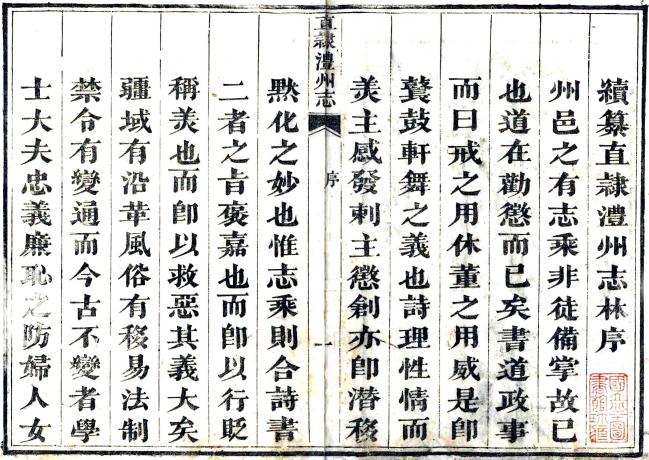 續纂直隸澧州志林序
州邑之有志乘非徒備掌故已
也道在勸懲而已矣書道政事
而曰戒之用休董之用威是卽
鼚鼓軒舞之義也詩理性情而
美主感發刺主懲創亦卽潛移
直隸澧州志
序
一
默化之妙也惟志乘則合詩書
二者之旨褒嘉也而卽以行貶
稱美也而卽以救惡其義大矣
疆域有沿革風俗有移易法制
禁令有變通而今古不變者學
士大夫忠義廉恥之防婦人女